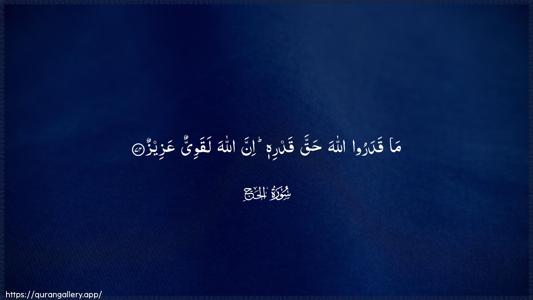 مَا قَدَرُوا اللّٰهَ حَقَّ قَدْرِهٖ ؕ اِنَّ اللّٰهَ لَقَوِىٌّ عَزِيْزٌ ۝۷۴
سُوْرَةُ الْحَجّ
https://qurangallery.app/